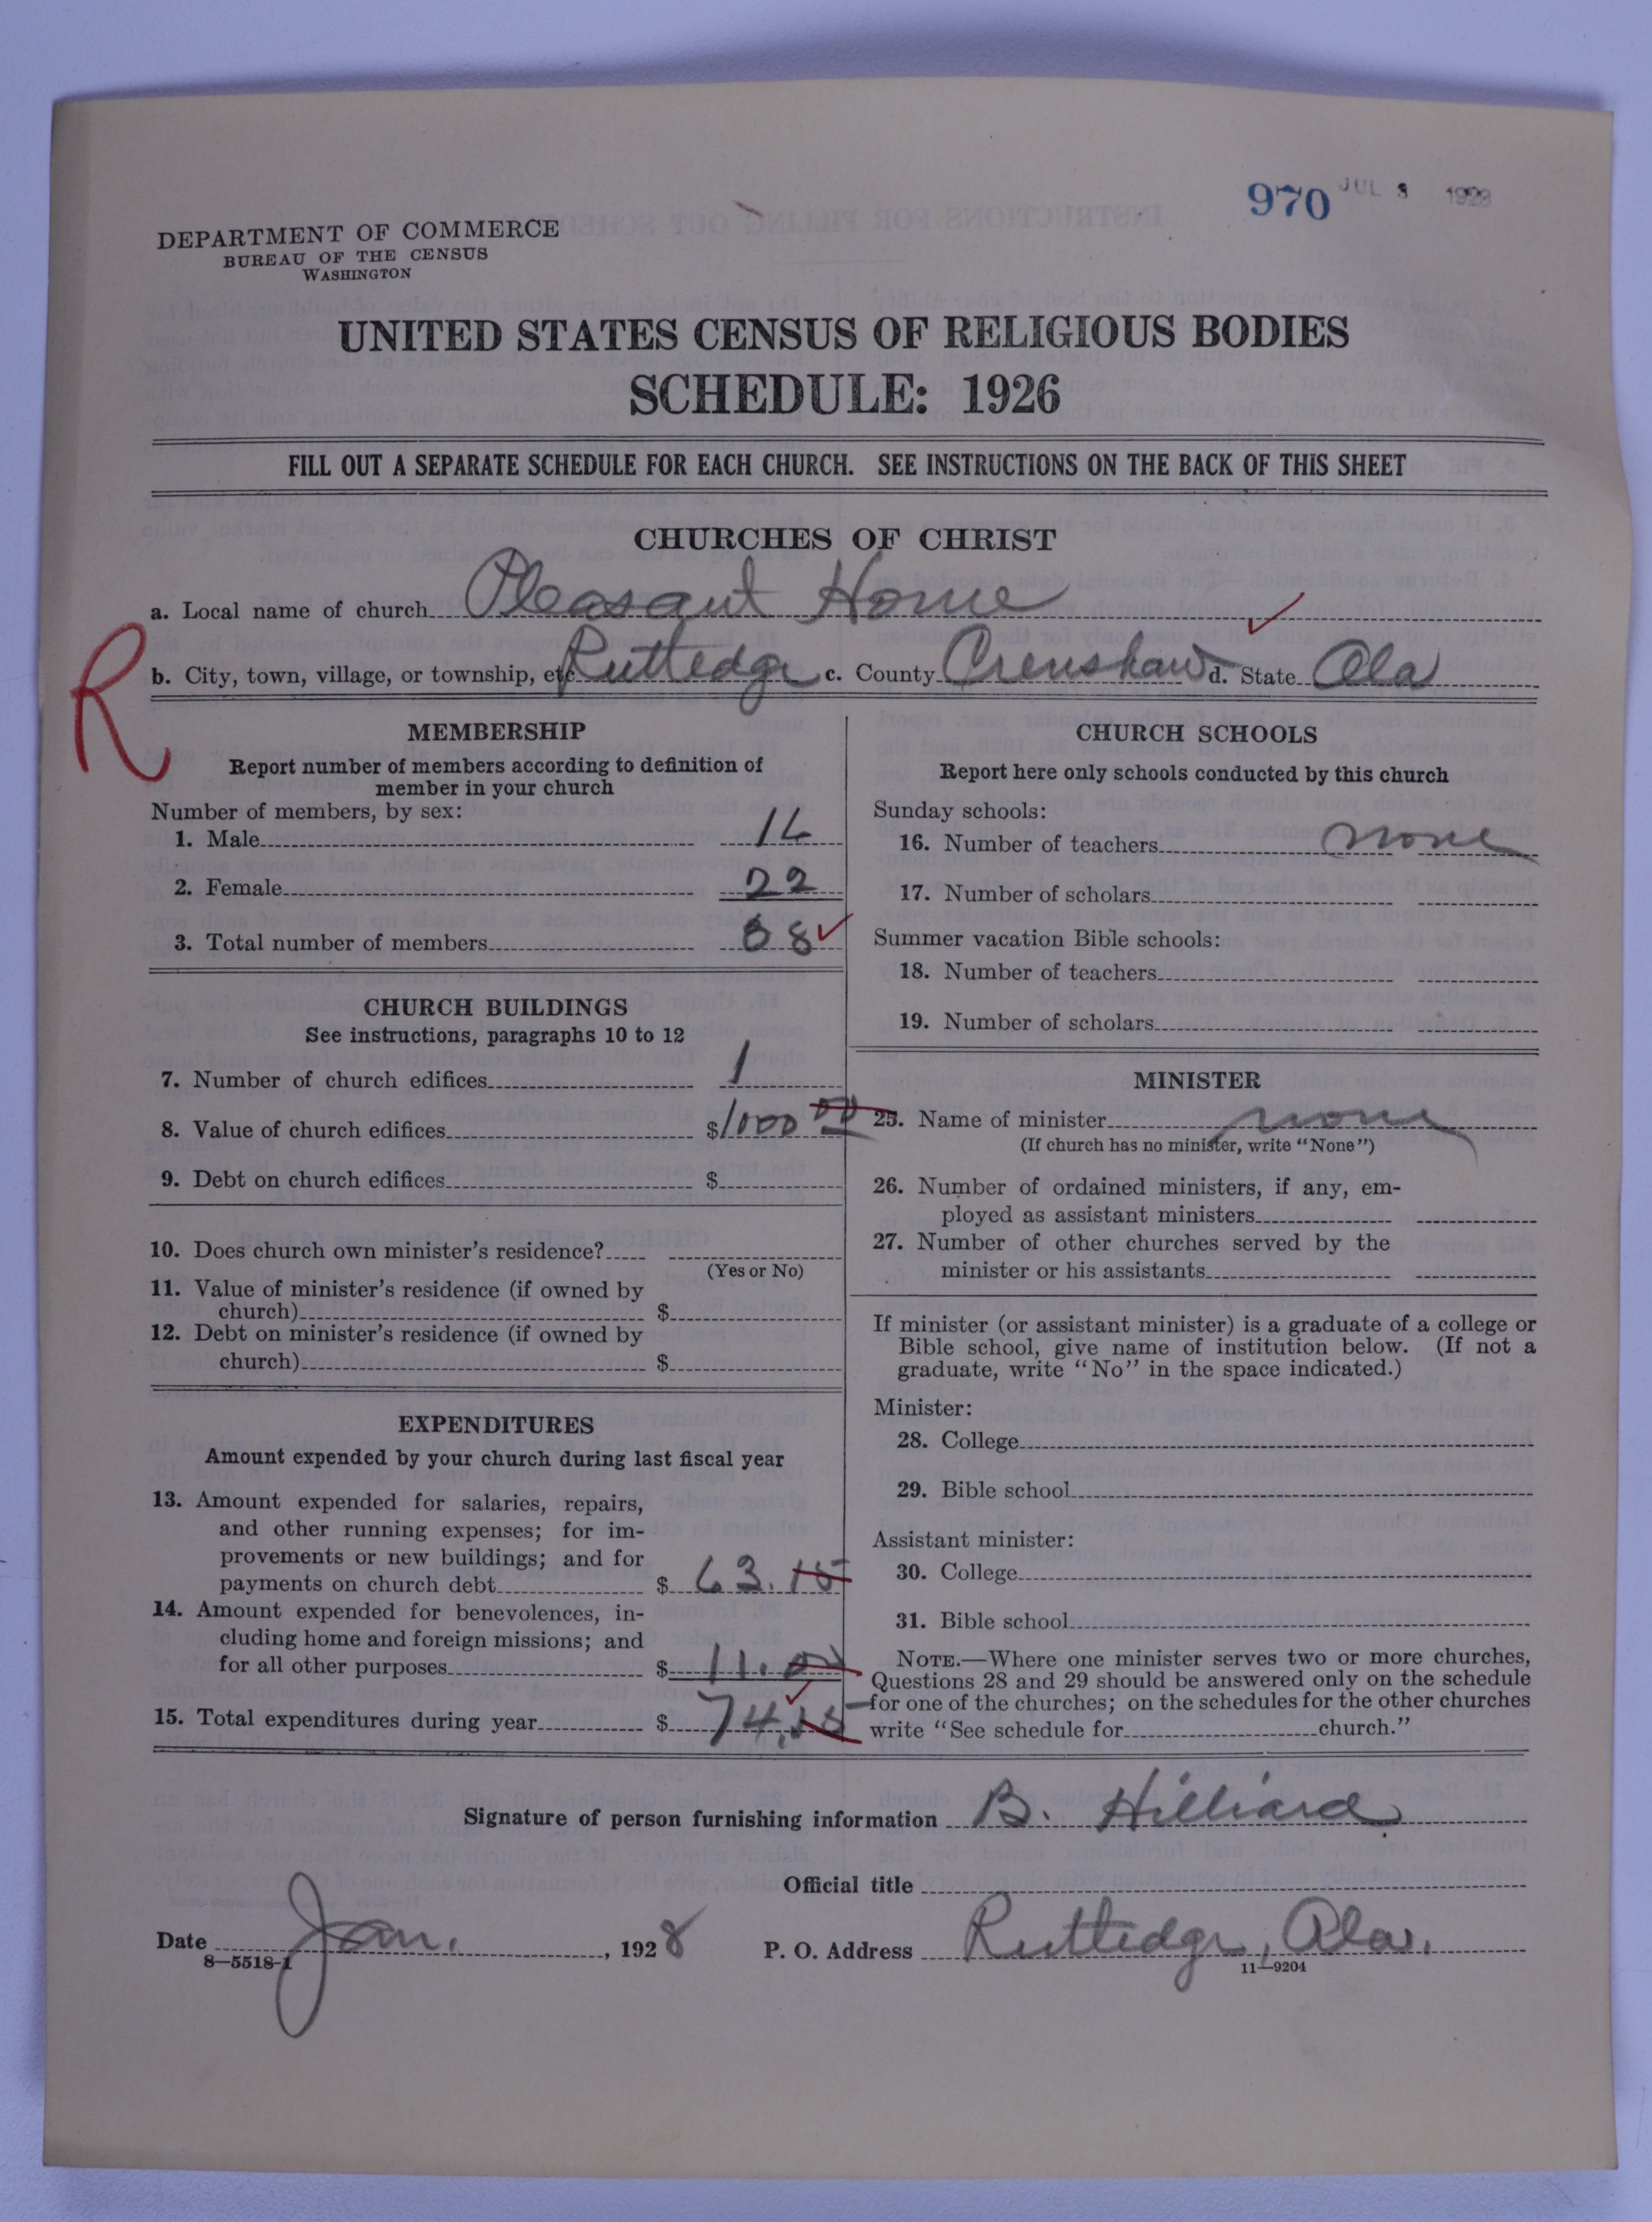 970 JUL 3 1928
DEPARTMENT OF COMMERCE
BUREAU OF THE CENSUS
WASHINGTON
UNITED STATES CENSUS OF RELIGIOUS BODIES
SCHEDULE: 1926
FILL OUT A SEPARATE SCHEDULE FOR EACH CHURCH. SEE INSTRUCTIONS ON THE BACK OF THIS SHEET
CHURCHES OF CHRIST
a. Local name of church Pleasant Home
R
b. City, town, village, or township, etc. Rutledge c. County Crenshaw d. State Ala
MEMBERSHIP
Report number of members according to definition of
member in your church
Number of members, by sex:
1. Male 16
2. Female 22
3. Total number of members 38
CHURCH BUILDINGS
See instructions, paragraphs 10 to 12
7. Number of church edifices 1
8. Value of church edifices $1000 00
9. Debt on church edifices $
10. Does church own minister's residence?
(Yes or No)
11. Value of minister's residence (if owned by
church) $
12. Debt on minister's residence (if owned by
church) $
EXPENDITURES
Amount expended by your church during last fiscal year
13. Amount expended for salaries, repairs,
and other running expenses; for im-
provements or new buildings; and for
payments on church debt $ 63.15
14. Amount expended for benevolences, in-
cluding home and foreign missions; and
for all other purposes $ 11.00
15. Total expenditures during year $ 74.15
CHURCH SCHOOLS
Report here only schools conducted by this church
Sunday schools:
16. Number of teachers none
17. Number of scholars
Summer vacation Bible schools:
18. Number of teachers
19. Number of scholars
MINISTER
25. Name of minister none
(If church has no minister, write "None")
26. Number of ordained ministers, if any, em-
ployed as assistant ministers
27. Number of other churches served by the
minister or his assistants
If minister (or assistant minister) is a graduate of a college or
Bible school, give name of institution below. (If not a
graduate, write "No" in the space indicated.)
Minister:
28. College
29. Bible school
Assistant minister:
30. College
31. Bible school
NOTE.—Where one minister serves two or more churches,
Questions 28 and 29 should be answered only on the schedule
for one of the churches; on the schedules for the other churches
write "See schedule for church."
Signature of person furnishing information B. Hilliard
Official title
Date Jan. , 1928 P. O. Address Rutledge, Ala.
8—5518-1 11—9204